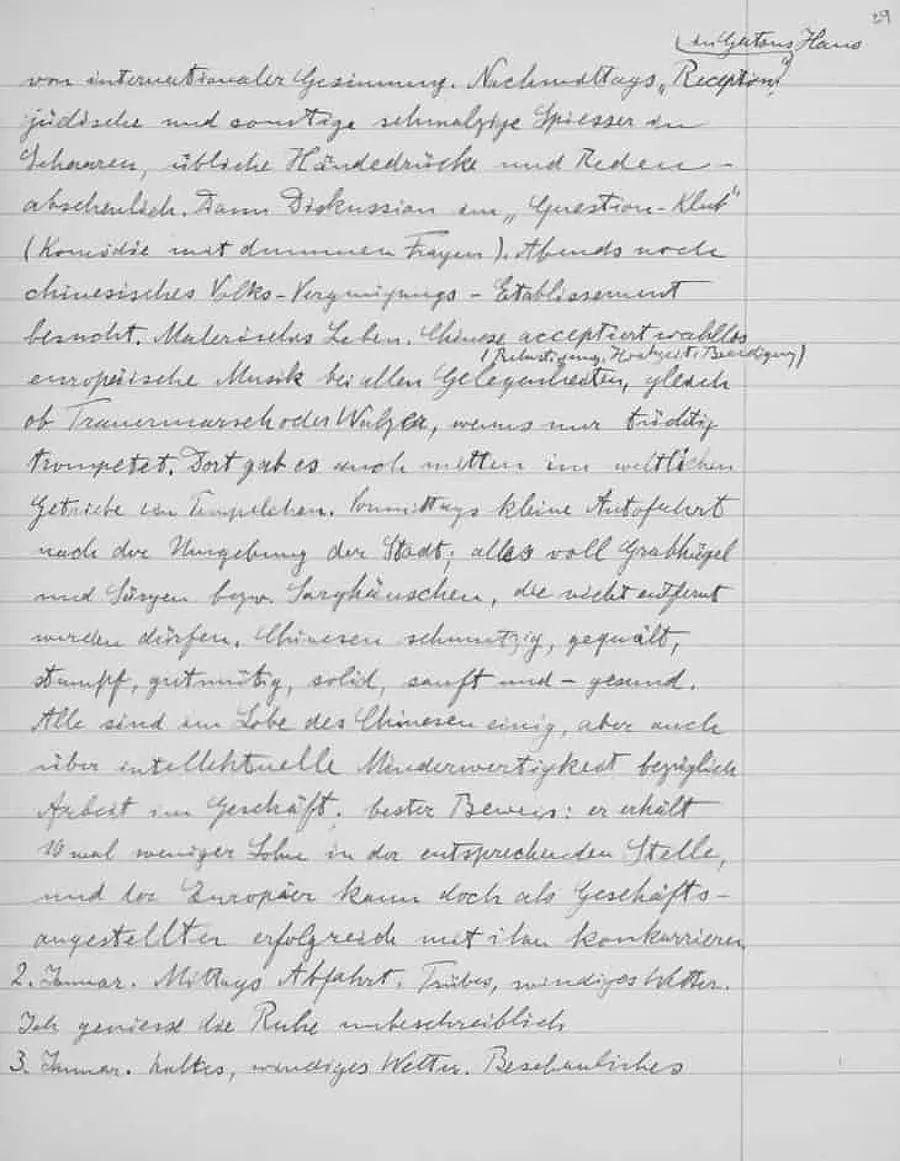 29
in Gattons Haus
von internationaler Gesinnung. Nachmittags „Reception“
jüdische und sonstige schmalzige Spiesser in
Scharen, übliche Händedrücke und Reden –
abscheulich. Dann Diskussion im „Question-Klub“
(Komödie mit dummen Fragen). Abends noch
chinesisches Volks-Vergnügungs-Etablissement
besucht. Malerisches Leben. Chinese acceptiert wahllos
(Belustigung, Hochzeit, Beerdigung)
europäische Musik bei allen Gelegenheiten, gleich
ob Trauermarsch oder Walzer, wenns nur tüchtig
trompetet. Dort gab es auch mitten im weltlichen
Getriebe ein Tempelchen. Vormittags kleine Autofahrt
nach der Umgebung der Stadt; alles voll Grabhügel
und Särgen bezw. Sarghäuschen, die nicht entfernt
werden dürfen. Chinesen schmutzig, gequält,
stumpf, gutmütig, solid, sanft und – gesund.
Alle sind im Lobe des Chinesen einig, aber auch
über intellektuelle Minderwertigkeit bezüglich
Arbeit im Geschäft; bester Beweis: er erhält
10 mal weniger Lohn in der entsprechenden Stelle,
und der Europäer kann doch als Geschäfts-
angestellter erfolgreich mit ihm konkurrieren
2. Januar. Mittags Abfahrt. Trübes, windiges Wetter.
Ich geniesse die Ruhe unbeschreiblich
3. Januar. kaltes, windiges Wetter. Beschauliches